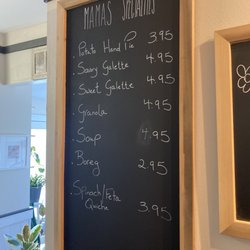 MAMAS SPECIALTIES
Potato Hand Pie 3.95
. Savory Galette 4.95
. Sweet Galette 4.95
. Granola 4.95
. Soup 4.95
. Boreg 2.95
. Spinach/Feta
Quiche 3.95